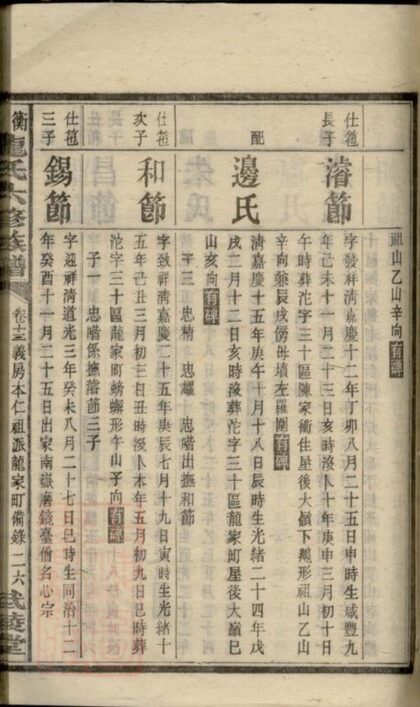 祖山乙山辛向有碑
仕苞長子
濬節
字發祥淸嘉慶十二年丁卯八月二十五日申時生咸豐九
年己未十一月二十三日亥時歿卜十年庚申三月初十日
午時葬沱字三十區陳家衝住屋後大嶺下鵝形祖山乙山
辛向兼辰戌傍母墳左羅圍有碑
配
邊氏
淸嘉慶十五年庚午十月十八日辰時生光緒二十四年戊
戌二月十二日亥時歿葬沱字三十區龍家町屋後大嶺巳
山亥向有碑
子三 忠精 忠耀 忠喈出撫和節
仕苞次子
和節
字致祥淸嘉慶二十五年庚辰七月十九日寅時生光緒十
五年己丑三月初三日丑時歿卜本年五月初九日巳時葬
沱字三十區龍家町螃蠏形午山子向有碑
子一 忠喈係撫濬節三子
仕苞三子
錫節
字迎祥淸道光三年癸未八月二十七日巳時生同治十二
年癸酉十一月二十五日出家南嶽磨鏡臺僧名心宗
衡龍氏六修族譜 卷十三 義房本仁祖派龍家町備錄 二六 武陵堂